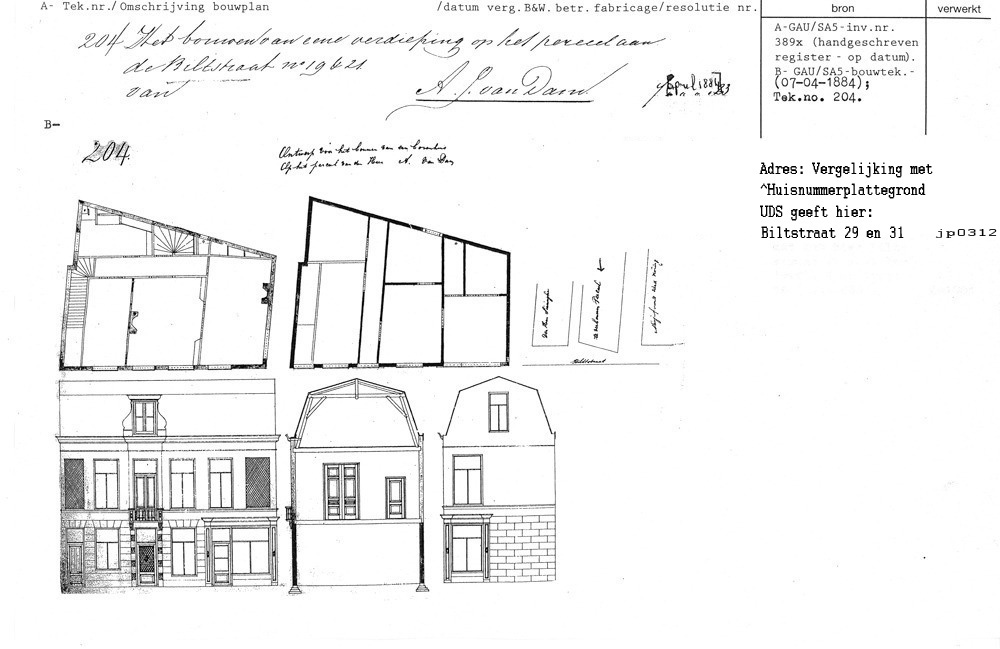 A- Tek.nr./Omschrijving bouwplan /datum verg.B&W. betr. fabricage/resolutie nr.
bron
verwerkt
204 Het bouwen van eene verdieping op het perceel aan
de Biltstraat no 19 & 21
van A. J. van Dam April 1884
A-GAU/SA5-inv.nr.
389x (handgeschreven
register - op datum).
B- GAU/SA5-bouwtek.-
(07-04-1884);
Tek.no. 204.
B-
204.
Ontwerp voor het bouwen van een bovenhuis
Op het perceel van den Heer A. van Dam
Adres: Vergelijking met
^Huisnummerplattegrond
UDS geeft hier:
Biltstraat 29 en 31 jp0312
Biltstraat